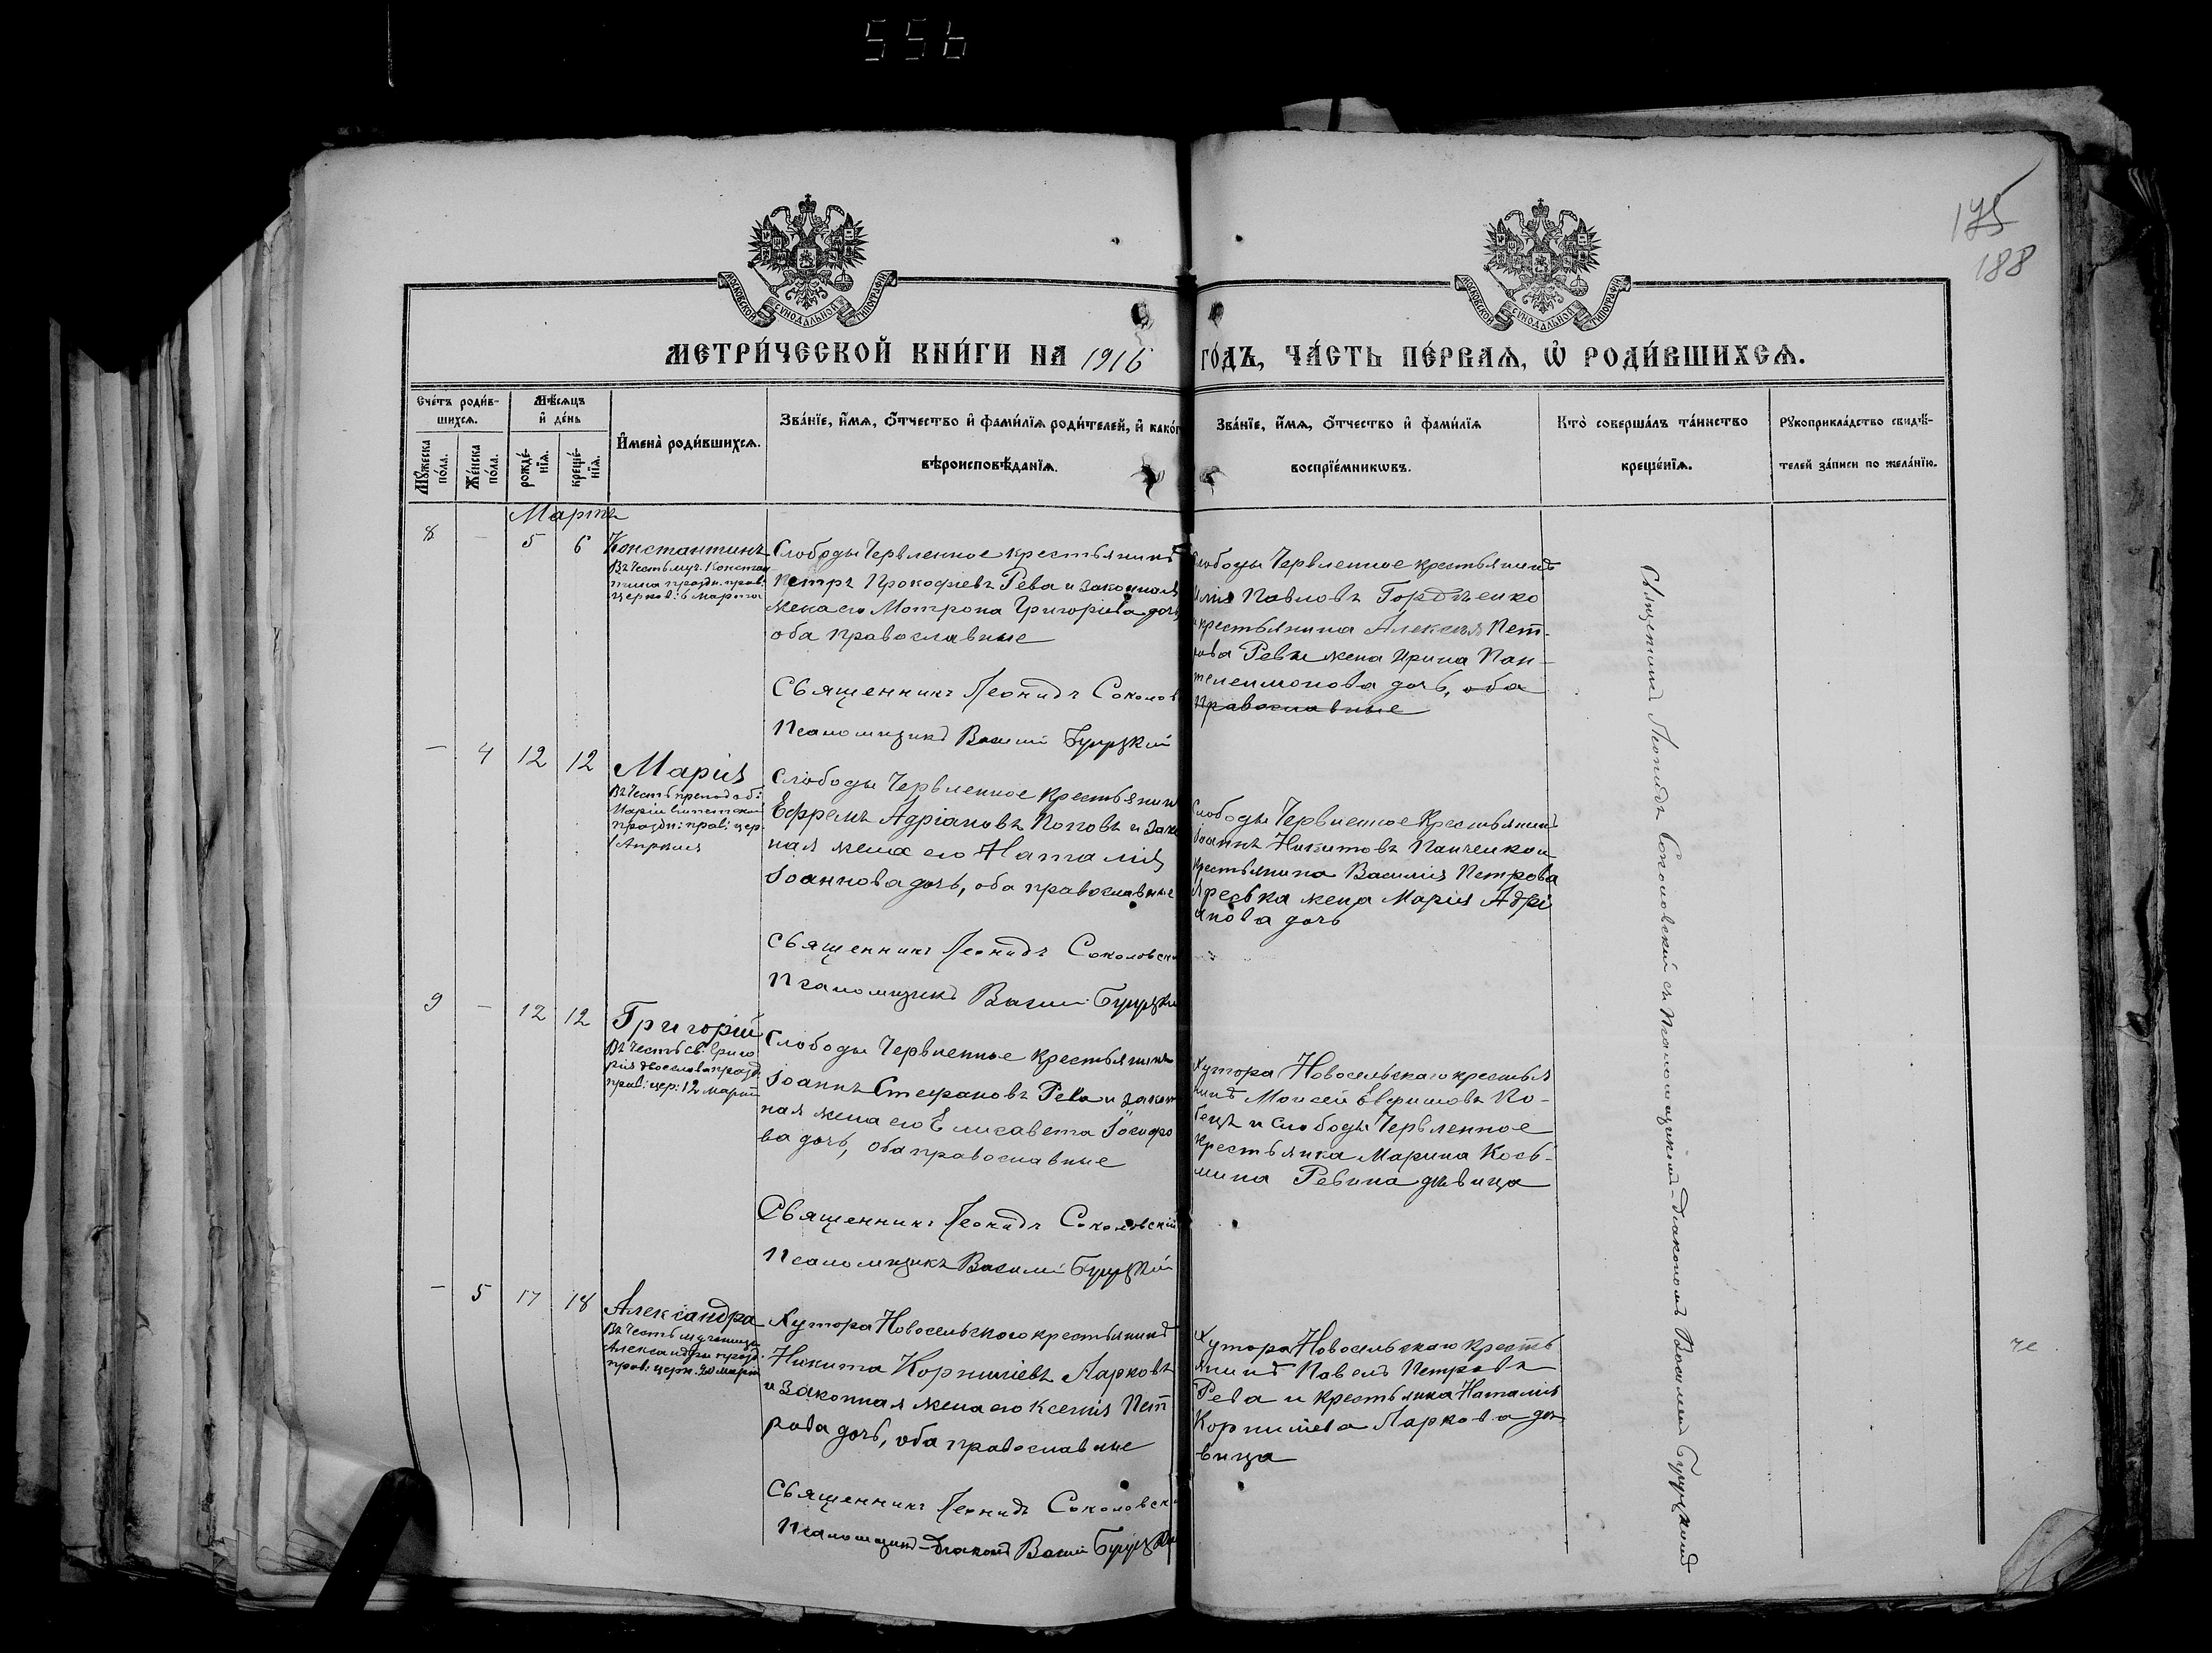 556
175
188
МОСКОВСКОЙ СѴНОДАЛЬНОЙ ТИПОГРАФІИ
МОСКОВСКОЙ СѴНОДАЛЬНОЙ ТИПОГРАФІИ
МЕТРИ́ЧЕСКОЙ КНИ́ГИ НА 1916 ГО́ДЪ, ЧА́СТЬ ПЕ́РВАѦ, Ѡ҆ РОДИ́ВШИХСѦ.
Сче́тъ роди́в-
шихсѧ.
Мꙋ́жеска по́ла.
Же́нска по́ла.
Мѣ́сѧцъ
и҆ де́нь
рожде́-
нїѧ.
креще́-
нїѧ.
И҆мена̀ роди́вшихсѧ.
Зва́нїе, и҆́мѧ, ѻ҆́тчество и҆ фами́лїѧ роди́телей, и҆ како́г
вѣроисповѣ́данїѧ.
Зва́нїе, и҆́мѧ, ѻ҆́тчество и҆ фами́лїѧ
воспрїе́мникѡвъ.
Кто̀ соверша́лъ та́инство
креще́нїѧ.
Рꙋкоприкла́дство свидѣ́-
телей за́писи по жела́нїю.
Марта
8 - 5 6
Константинъ
Въ честь муч. Констан
тина праздн. прав.
церков. 6 марта
Слободы Червленное крестьянинъ
Петръ Прокофіевъ Рева и законная
жена его Матрона Григоріева дочь
оба православные
Священникъ Леонидъ Соколов
Псаломщикъ Василій Буруцкій
Слободы Червленное крестьянинъ
Илія Павловъ Гордѣенко
и крестьянина Алексѣя Пет-
рова Ревы жена Ирина Пан-
телеимонова дочь, оба
православные
- 4 12 12
Марія
Въ честь преподоб:
Маріи Египетской
праздн: прав: цер.
1 Апрѣля
Слободы Червленное крестьянин
Ефремъ Адріановъ Поповъ и зако
ная жена его Наталія
Іоаннова дочь, оба православные
Священникъ Леонидъ Соколовскі
Псаломщикъ Васили Буруцкі
Слободы Червленное крестьянинъ
Іоаннъ Никитовъ Панченко и
крестьянина Василія Петрова
Яреська жена Марія Адрі
анова дочь
9 - 12 12
Григорій
Въ честь св. Григо
рія Двоеслова празд.
прав: цер: 12 марта
Слободы Червленное крестьянинъ
Іоаннъ Стефановъ Рева и закон
ная жена его Елисавета Іосифо
ва дочь, оба православные
Священникъ Леонидъ Соколовскій
Псаломщикъ Василій Буруцкій
Хутора Новосельскаго крестья
нинъ Моисей
и Слободы Червленное
крестьянка Марина Кось-
мина Ревина дѣвица
- 5 17 18
Александра
Въ честь мученицы
Александры празд.
прав: церк. 20 марта
Хутора Новосельскаго крестьянинъ
Никита Корниліевъ Ларковъ
и законная жена его Ксенія Пет
рова дочь, оба православные
Священникъ Леонидъ Соколовскі
Псаломщикъ-Діаконъ Василій Буруцкі
Хутора Новосельскаго кресть
янинъ Павелъ Петровъ
Рева и крестьянка Наталія
Корниліева Ларкова дѣ
вица
Священникъ Леонидъ Соколовскій съ Псаломщикомъ-Діакономъ Василіемъ Буруцкимъ